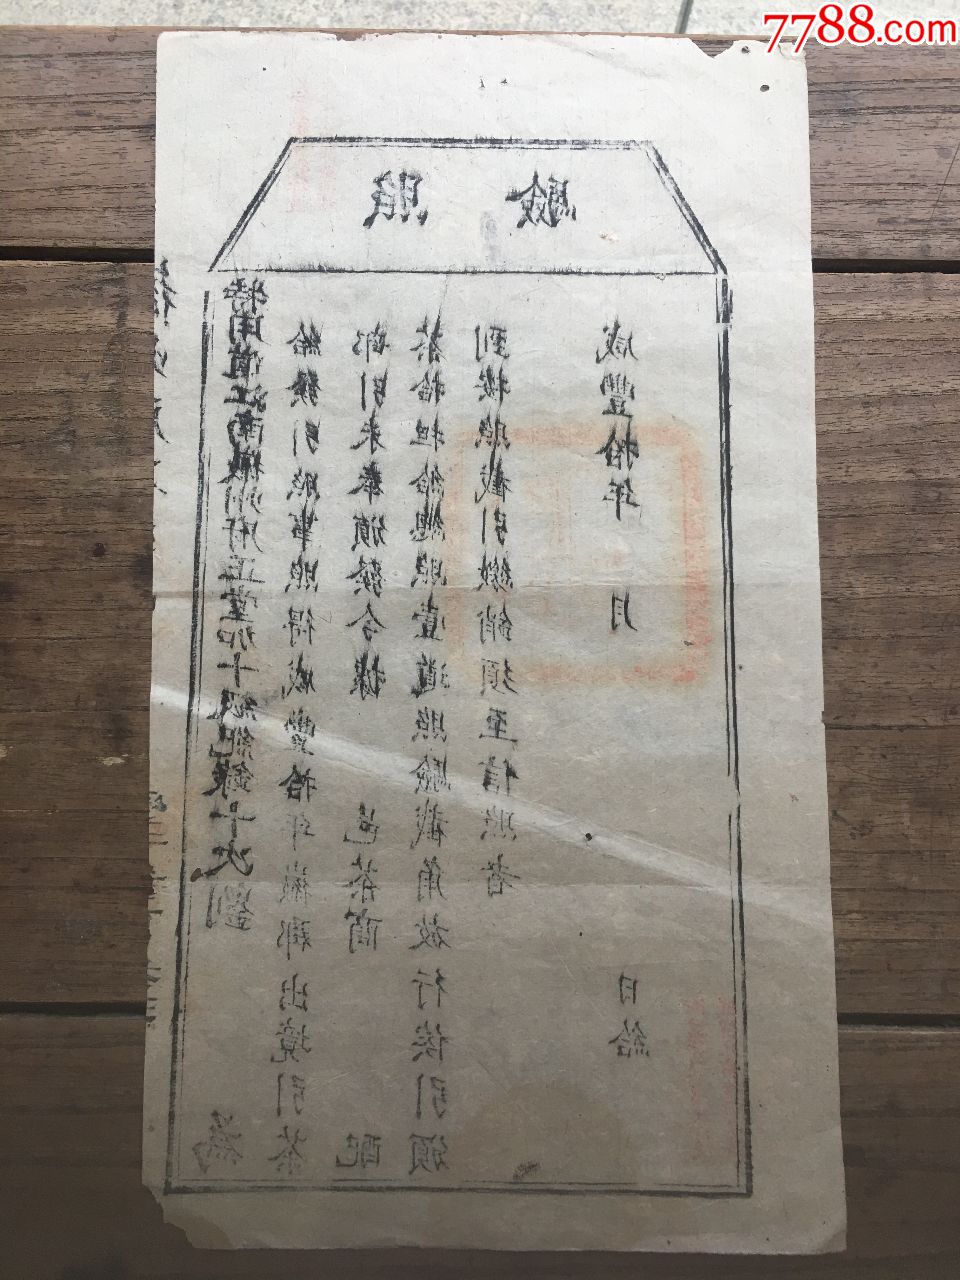 7788.com
照驗
特用道江南徽州府正堂加十級紀錄十次劉 為
給發引照事照得咸豐拾年徽郡出境引茶
部引未奉頒發今據 邑茶商 配
茶拾担給總照壹道照驗截角放行俟引頒
到按照截引繳銷須至信照者
咸豐拾年 月 日給